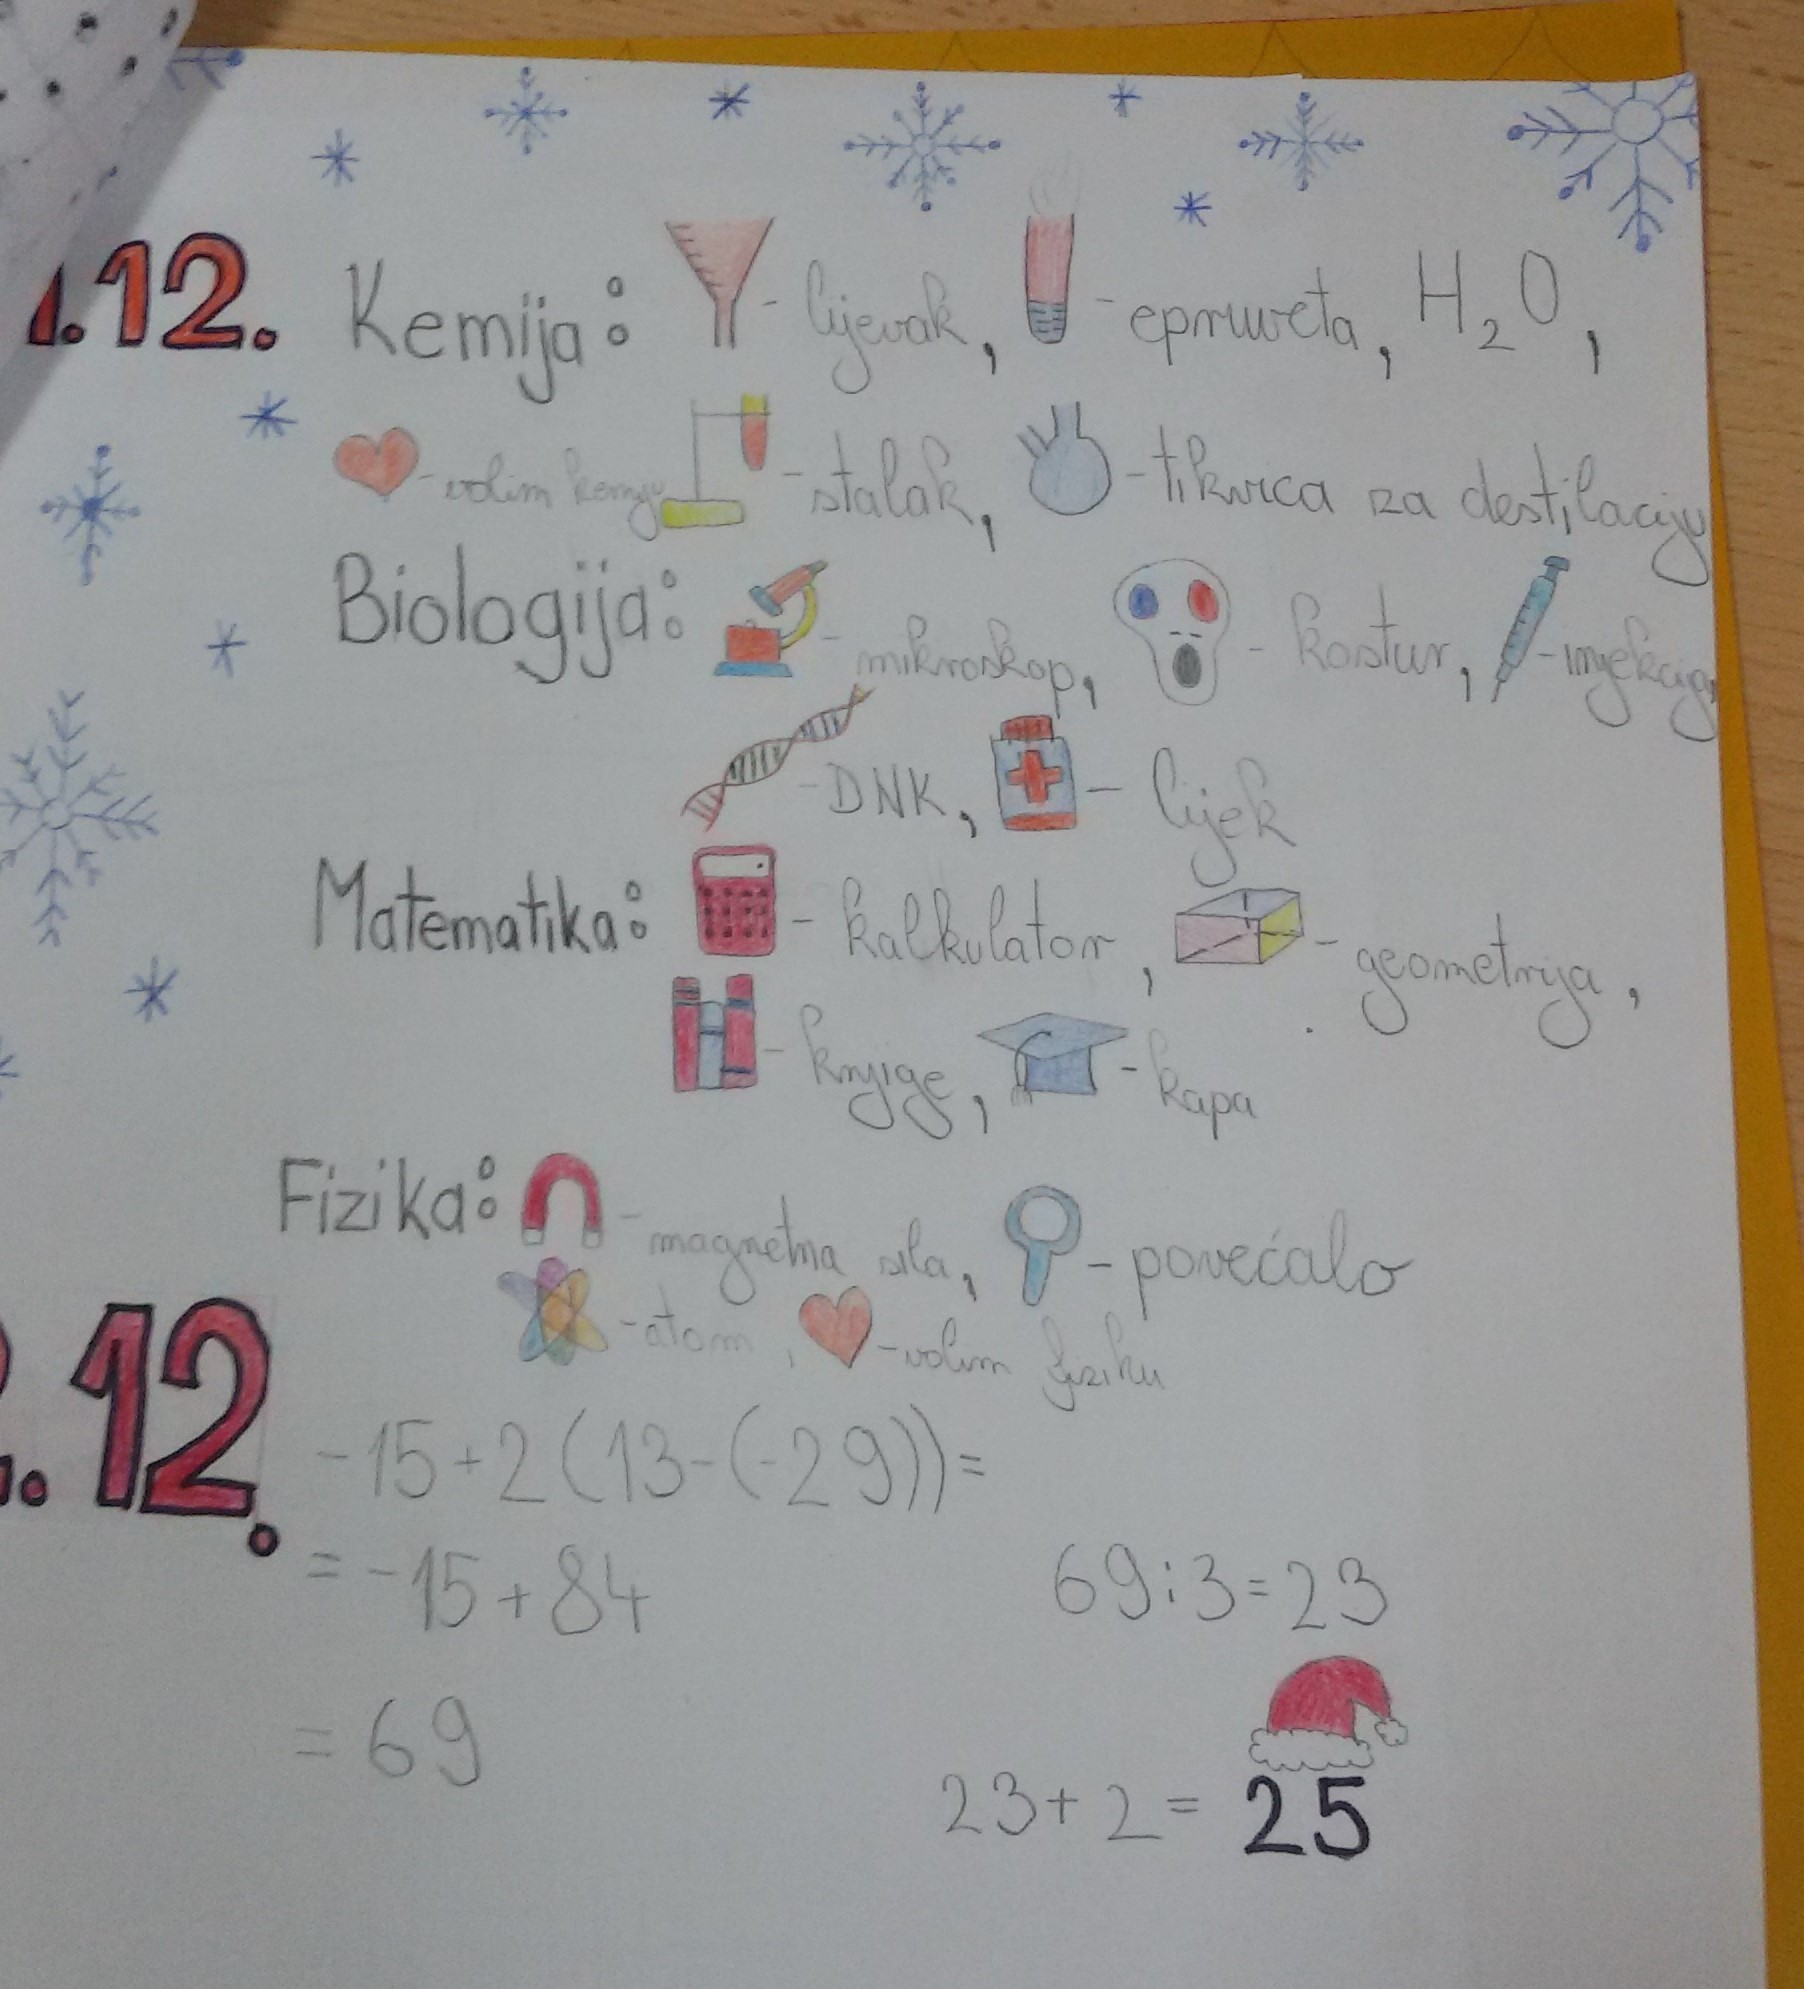 1.12. Kemija: - lijevak, - epruveta, H₂O,
- volim kemiju - stalak, - tikvica za destilaciju
Biologija: - mikroskop, - kostur, - injekcija,
- DNK, - lijek
Matematika: - kalkulator, - geometrija,
- knjige, - kapa
Fizika: - magnetna sila, - povećalo
- atom, - volim fiziku
2.12. -15+2(13-(-29))=
= -15+84 69:3=23
= 69
23+2= 25